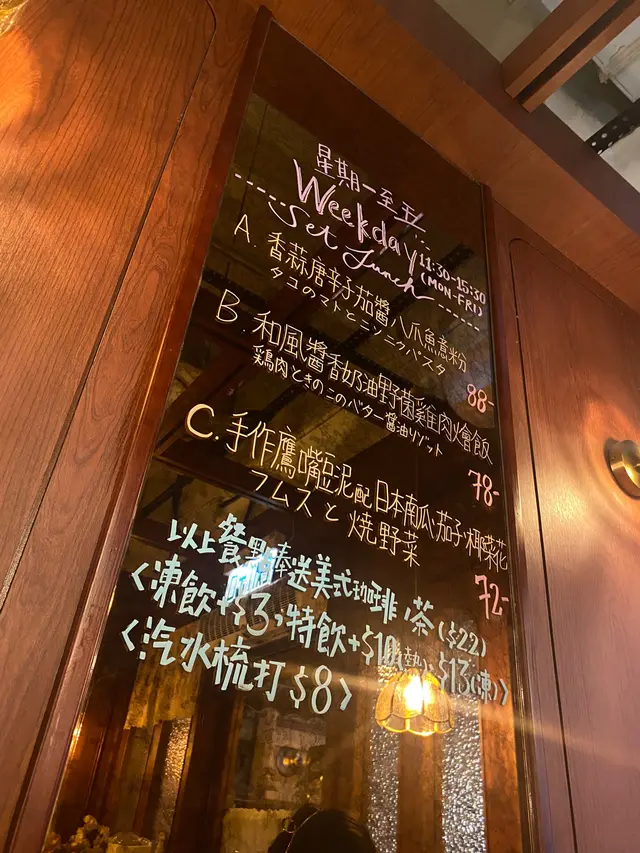 星期一至五
Weekday 11:30-15:30
Set Lunch (MON-FRI)
A. 香蒜唐辛子茄醬八爪魚意粉
タコのマトとニンニクパスタ
88-
B. 和風醬香奶油野菌雞肉燴飯
鶏肉ときのこのバター醤油リゾット
78-
C. 手作鷹嘴豆泥配日本南瓜·茄子·椰菜花
フムスと焼野菜
72-
以上餐點奉送美式珈琲/茶($22)
<凍飲+$3,特飲+$10(熱),$13(凍)>
<汽水梳打$8>